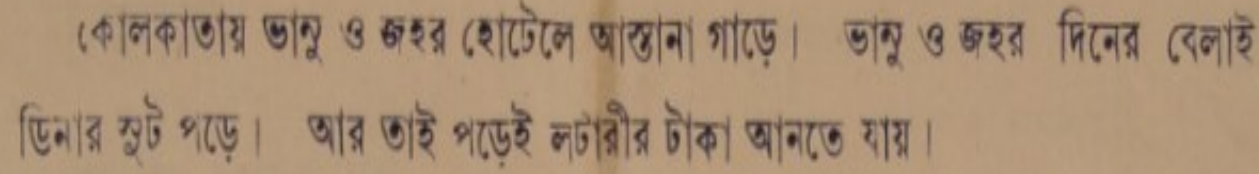 কোলকাতায় ভানু ও জহর হোটেলে আস্তানা গাড়ে। ভানু ও জহর দিনের বেলাই
ডিনার স্যুট পড়ে। আর তাই পড়েই লটারীর টাকা আনতে যায়।